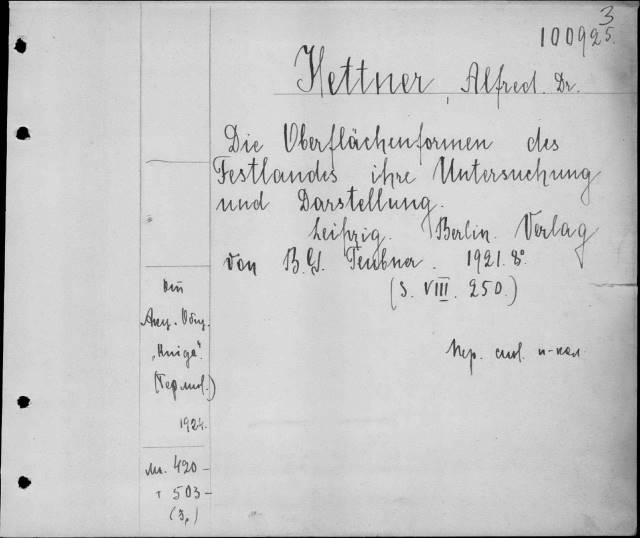 3
100925.
Hettner, Alfred. Dr.
Die Oberflächenformen des
Festlandes ihre Untersuchung
und Darstellung.
Leipzig. Berlin. Verlag
von B.G. Teubner. 1921. 8°.
(S. VIII. 250.)
Пер.
Акц. Общ.
„Книга“.
1924.
420 –
503 –